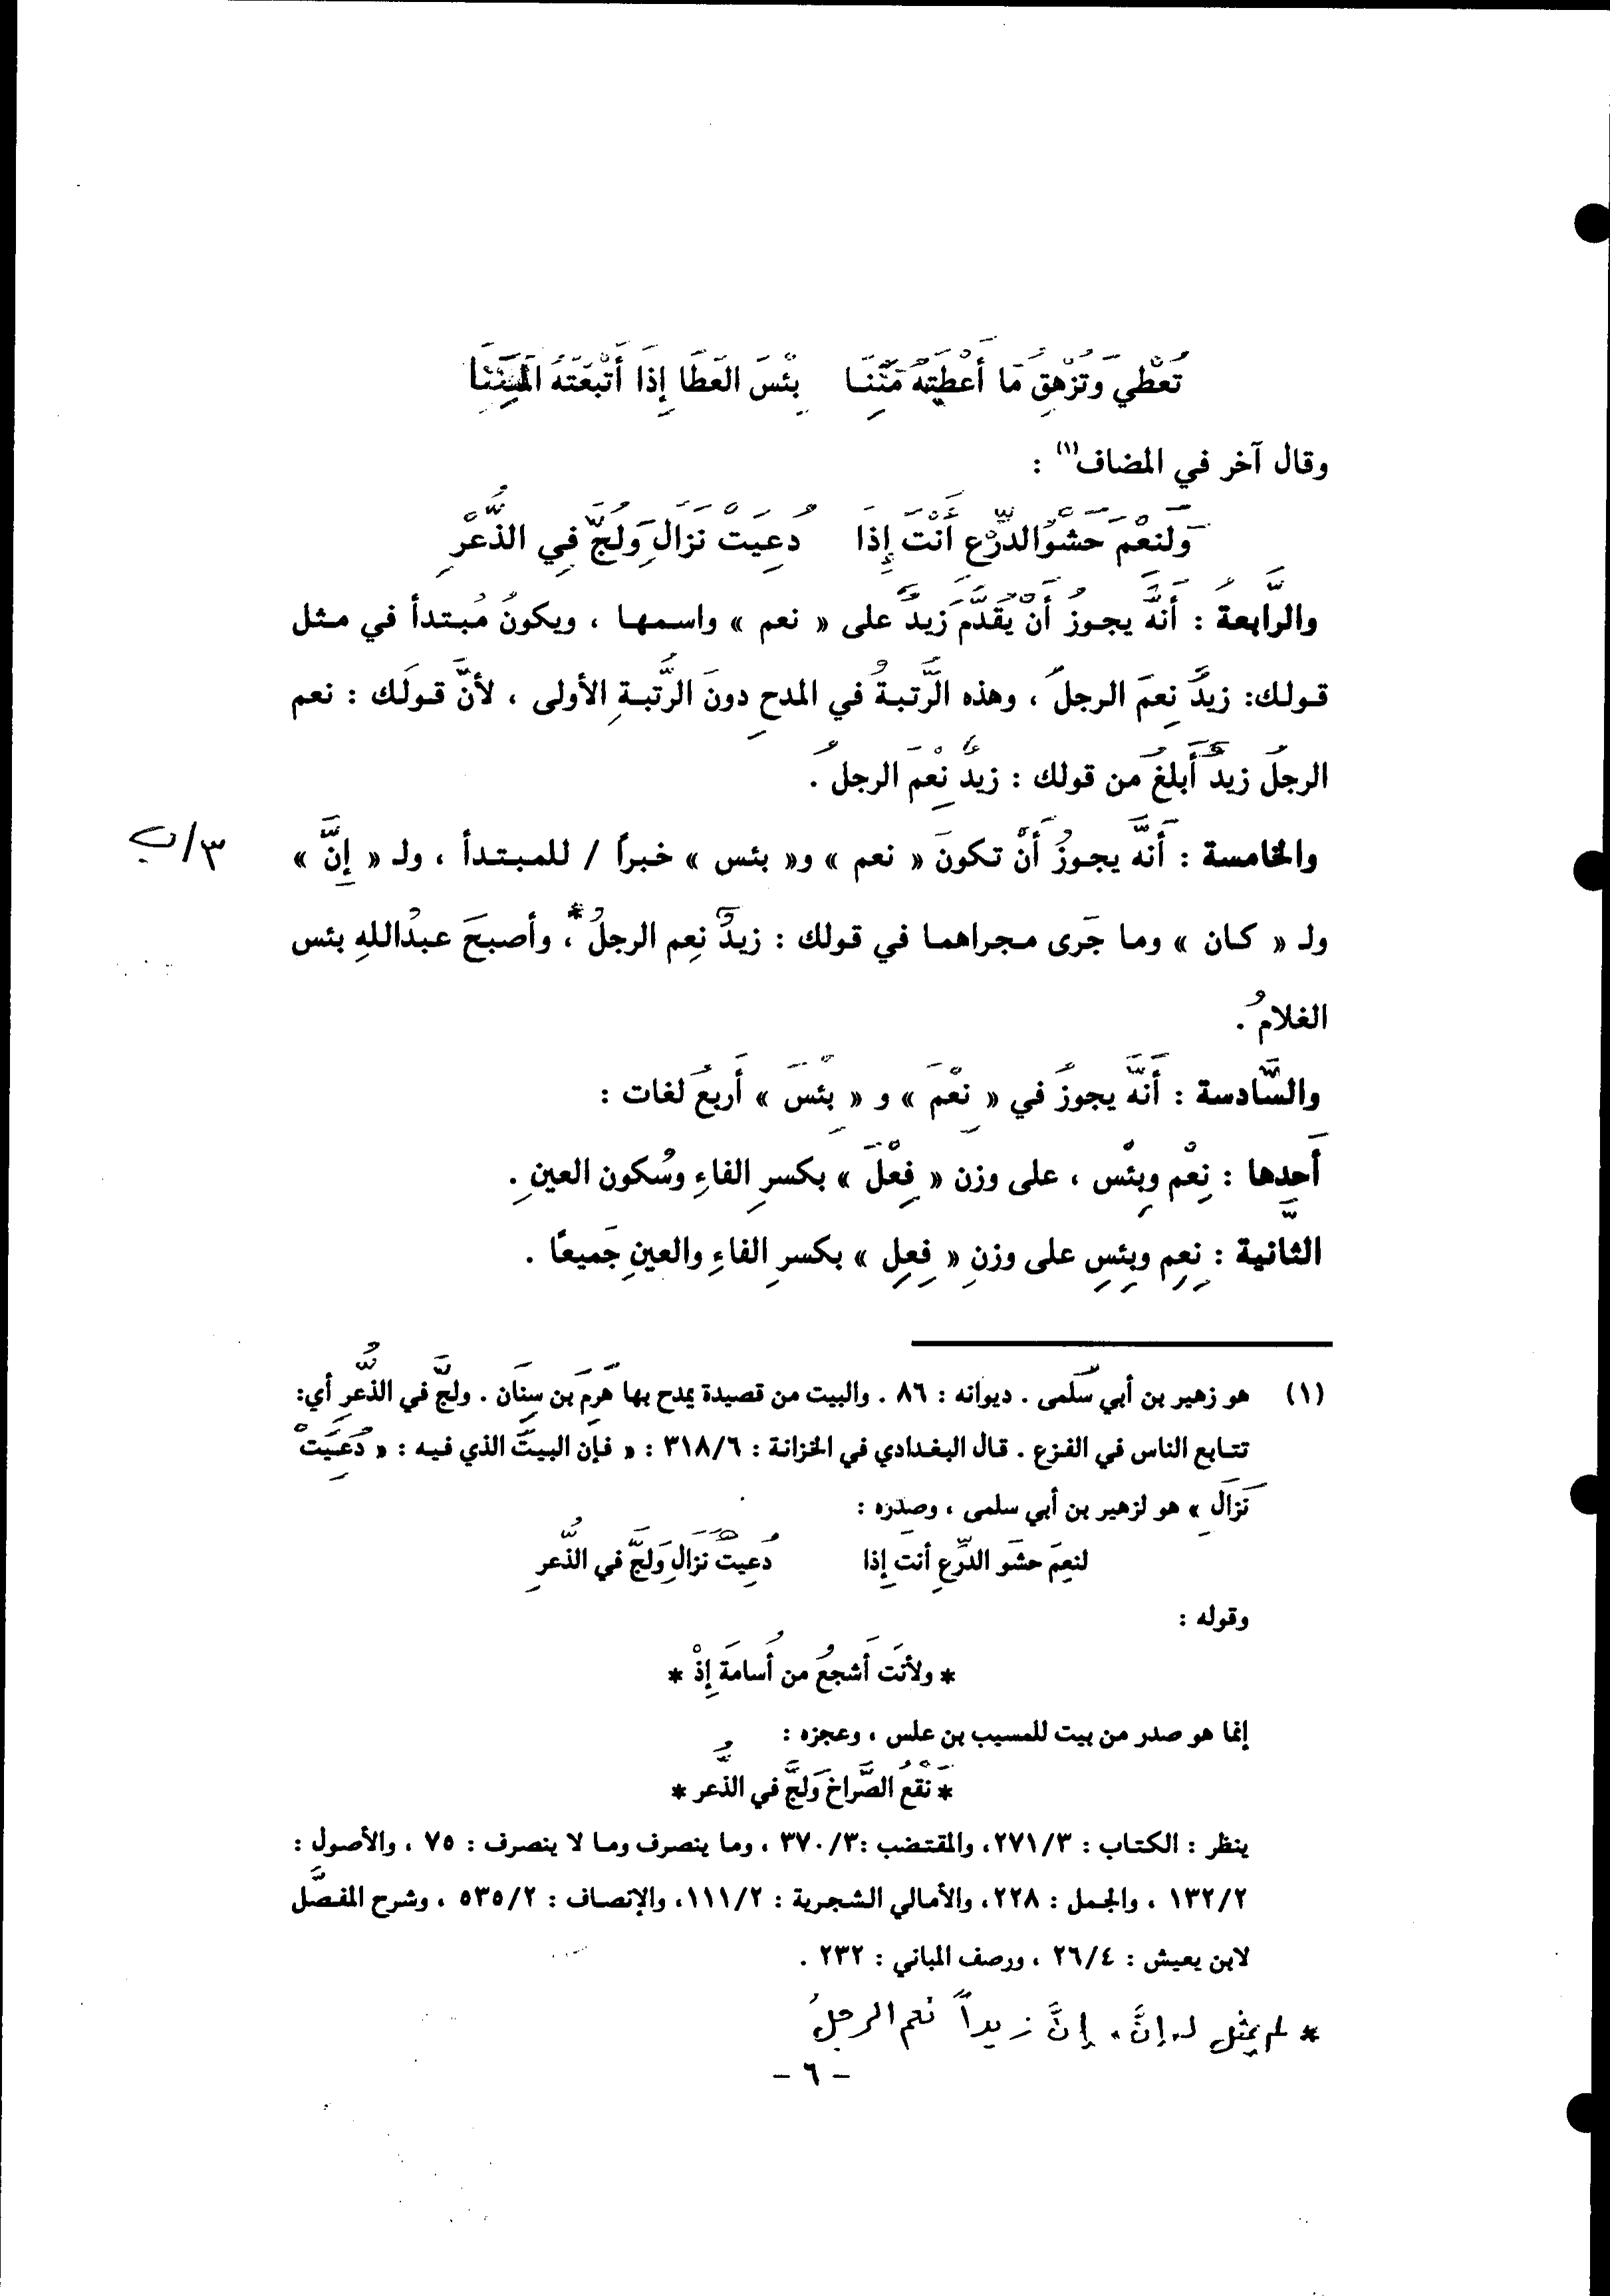 تُعْطِي وَتُزْهِقُ مَا أَعْطَيْتَهُ مِنَنَا    بِئْسَ العَطَا إِذَا أَتْبَعْتَهُ المِنَنَا
وقال آخر في المضاف(١) :
وَلَنِعْمَ حَشْوُ الدِّرْعِ أَنْتَ إِذَا    دُعِيَتْ نَزَالِ وَلُجَّ فِي الذُّعْرِ
والرَّابعةُ : أَنَّهُ يجوزُ أَنْ يُقَدَّمَ زيدٌ على « نعم » واسمها ، ويكونُ مُبتدأ في مثل
قولك: زيدٌ نِعمَ الرجلُ ، وهذه الرُّتبةُ في المدحِ دونَ الرُّتبةِ الأولى ، لأنَّ قولَك : نعم
الرجلُ زيدٌ أَبلغُ من قولك : زيدٌ نِعْمَ الرجلُ .
والخامسة : أَنَّه يجوزُ أَنْ تكونَ « نعم » و« بئس » خبراً / للمبتدأ ، ولـ « إِنَّ »
٣/ب
ولـ « كان » وما جَرى مجراهما في قولك : زيدٌ نِعم الرجلُ* ، وأصبحَ عبدُاللهِ بئس
الغلامُ .
والسَّادسة : أَنَّهُ يجوزُ في « نِعْمَ » و « بِئْسَ » أَربعُ لغات :
أَحدِها : نِعْم وبِئْس ، على وزن « فِعْلَ » بكسرِ الفاءِ وسُكون العينِ .
الثَّانية : نِعِم وبِئِسِ على وزنِ « فِعِلِ » بكسرِ الفاءِ والعينِ جَميعًا .
(١) هو زهير بن أبي سُلمى . ديوانه : ٨٦ . والبيت من قصيدة يمدح بها هَرِمَ بن سِنَان . ولجَّ في الذُّعرِ أي:
تتابع الناس في الفزع . قال البغدادي في الخزانة : ٣١٨/٦ : « فإن البيتَ الذي فيه : « دُعِيَتْ
نَزَالِ » هو لزهير بن أبي سلمى ، وصدره :
لنِعِمَ حشَو الدِّرعِ أنتَ إِذا    دُعِيتْ نزالِ وَلجَّ في الذُّعرِ
وقوله :
* ولأنَت أَشجعُ من أُسامَة إِذْ *
إنما هو صدر من بيت للمسيب بن علس ، وعجزه :
* نَقْعُ الصَّراخ وَلجَّ في الذُّعر *
ينظر : الكتاب : ٢٧١/٣، والمقتضب :٣٧٠/٣ ، وما ينصرف وما لا ينصرف : ٧٥ ، والأصول :
١٣٢/٢ ، والجمل : ٢٢٨، والأمالي الشجرية : ١١١/٢، والإنصاف : ٥٣٥/٢ ، وشرح المفصَّل
لابن يعيش : ٢٦/٤ ، ورصف المباني : ٢٣٢ .
* لم يمثل لـ "إنَّ" إنَّ زيداً نعم الرجلُ
- ٦ -